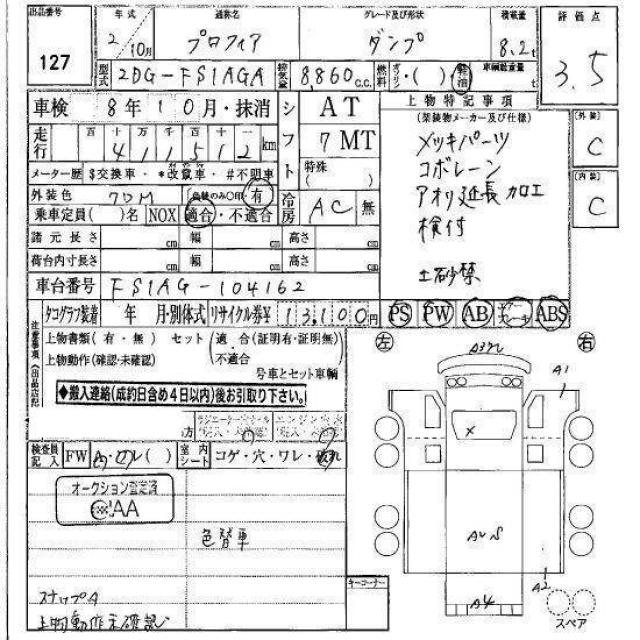 出品番号 年式 通称名 グレード及び形状 積載量 評価点
127 2/10月 プロフィア ダンプ 8.2t 3.5
型式 2DG-FS1AGA 排気量 8860c.c. 燃料 ガソリン・( )・軽油 車輌総重量 t
車検 8年10月・抹消 シフト AT 上物特記事項 [外装]
走行 百 十 万 千 百 十 一 7MT (架装物メーカー及び仕様) C
411512km 特殊( ) メッキパーツ
メーター歴 $交換車・*改竄車・#不明車 コボレーン [内装]
外装色 70M (色替のみ○印・有) 冷房 AC 無 アオリ延長加工 C
乗車定員( )名 NOX 適合・不適合 検付
諸元長さ cm 幅 cm 高さ cm
荷台内寸長さ cm 幅 cm 高さ cm
車台番号 FS1AG-104162 土砂禁
タコグラフ装着 年 月・別体式 リサイクル券¥ 13,100円 PS PW AB ABS
注意事項(出品店記 上物書類(有・無) セット(適合(証明有・証明無) 左 右
上物動作(確認・未確認) ・不適合) A3 A1
号車とセット車輌
◆搬入連絡(成約日含め4日以内)後お引取り下さい。
方 ×
検査員記入 FW 室内シート コゲ・穴・ワレ・破れ
オークション
IAA
色替車 A2
キーコーナー A4
スナップA
上物動作未確認 スペア